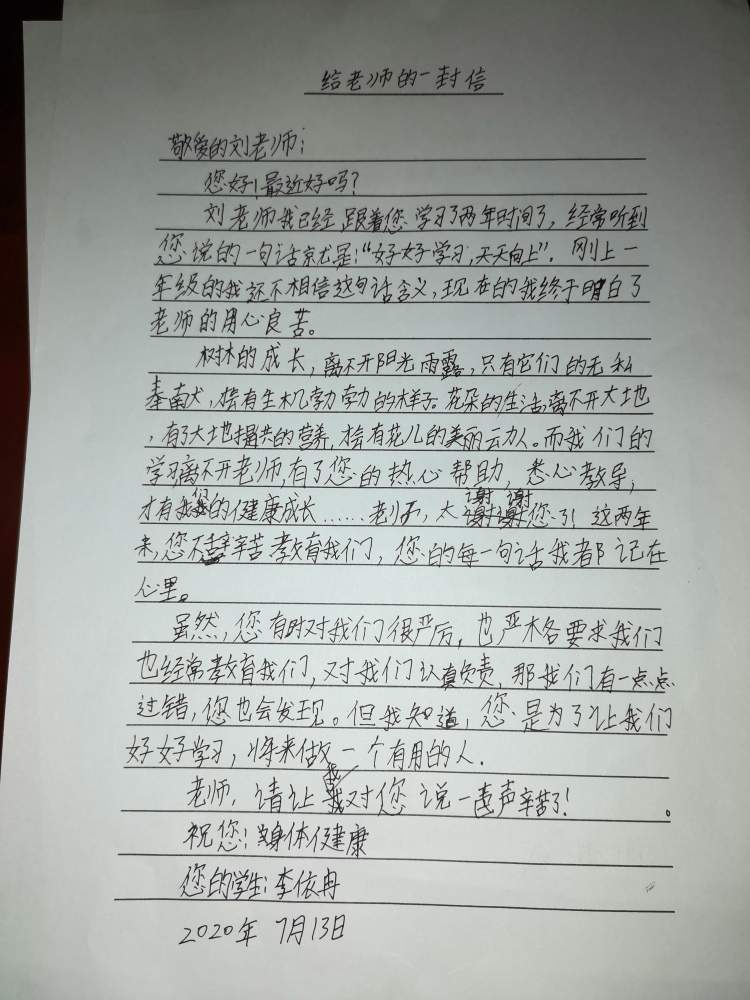 给老师的一封信
敬爱的刘老师：
您好！最近好吗？
刘老师我已经跟着您学习了两年时间了，经常听到
您说的一句话就是：“好好学习，天天向上”．刚上一
年级的我还不相信这句话含义，现在的我终于明白了
老师的用心良苦。
树林的成长，离不开阳光雨露，只有它们的无私
奉献，才会有生机勃勃的样子。花朵的生活离不开大地
，有了大地提供的营养，才会有花儿的美丽动人。而我们的
学习离不开老师，有了您的热心帮助，悉心教导，
才有我的健康成长……老师，太谢谢您了！这两年
来，您不辞辛苦教育我们，您的每一句话我都记在
心里。
虽然，您有时对我们很严厉，也严格要求我们
也经常教育我们，对我们认真负责，那我们有一点点
过错，您也会发现。但我知道，您是为了让我们
好好学习，将来做一个有用的人．
老师，请让我对您说一声辛苦了！。
祝您！身体健康
您的学生：李依冉
2020年7月13日